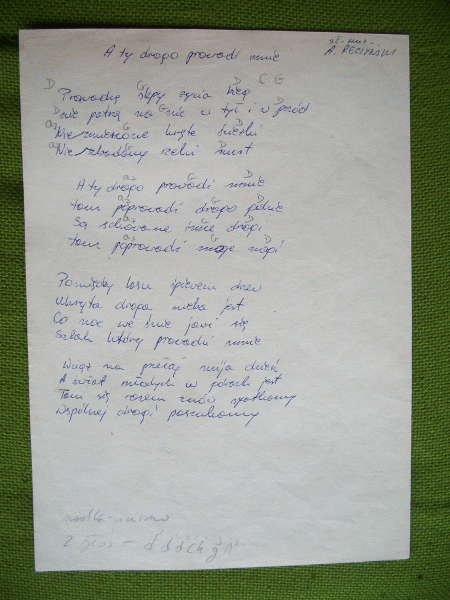 A ty drogo prowadź mnie
sł. muz. -
A. RECZYŃSKI
D G D C G
Prowadzą ślepy życia bieg
D G D
Nie patrzę na nic w tył i w przód
a G D
Niezmierzone kręte ścieżki
a G D
Niezbadany cel
a G D
A ty drogo prowadź mnie
a G D
tam poprowadź drogo
a G D
Są schowane inne drogi
a G D
tam poprowadź moje nogi
Pomiędzy lasu śpiewem drzew
Ukryta droga nieba jest
Co noc we śnie jawi się
Szlak który prowadzi mnie
Wciąż na przełaj mija dzień
A świat młodych w górach jest
Tam się razem znów spotkamy
Wspólnej drogi poszukamy
2 głos -